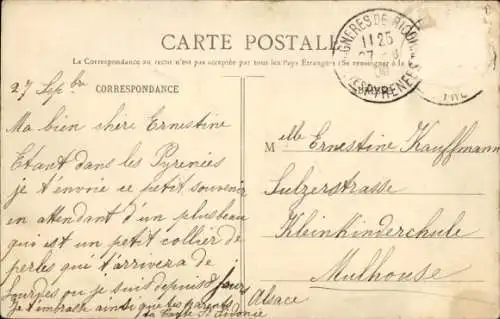 CARTE POSTALE
La Correspondance au recto n'est pas acceptée par tous les Pays Étrangers (Se renseigner à la
GNÈRES DE BIGOR
11 25
27
TES PYRÉNÉES
27 Sepbre
CORRESPONDANCE
Ma bien chère Ernestine
Etant dans les Pyrenées
je t'envoie ce petit souvenir
en attendant d'un plus beau
qui est un petit collier de
perles qui t'arrivera de
Lourdes ou je suis depuis 8 jours
Je t'embrasse ainsi que tes parents
ta Tante
Melle Ernestine Kauffmann
Sulzerstrasse
Kleinkinderschule
Mulhouse
Alsace